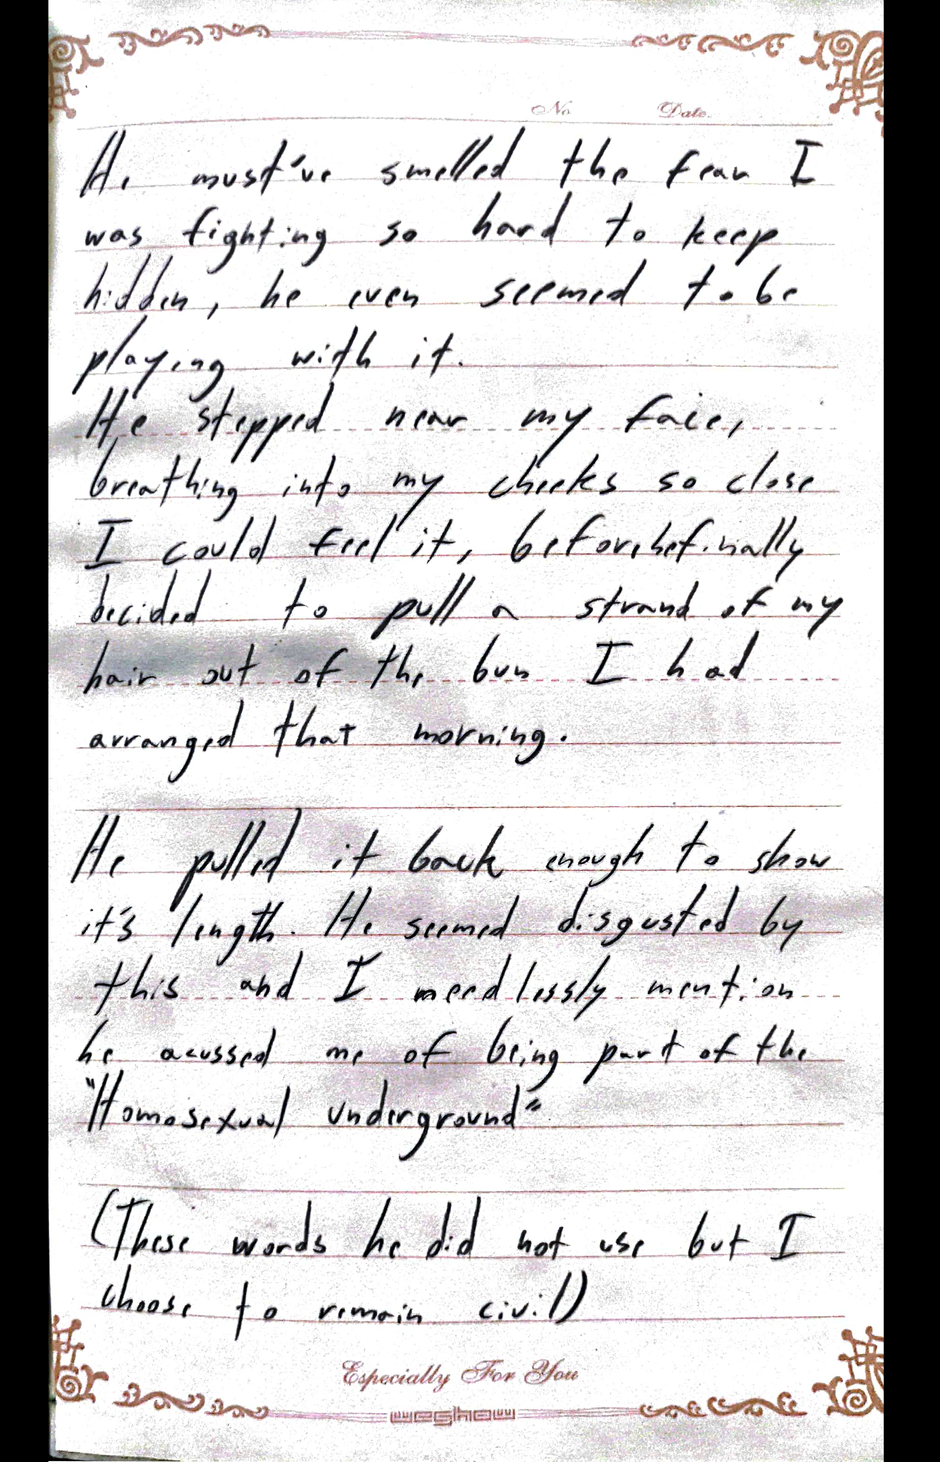 No. Date.
He must've smelled the fear I
was fighting so hard to keep
hidden, he even seemed to be
playing with it.
He stepped near my face,
breathing into my cheeks so close
I could feel it, before he finally
decided to pull a strand of my
hair out of the bun I had
arranged that morning.
He pulled it back enough to show
it's length. He seemed disgusted by
this and I needlessly mention
he acussed me of being part of the
"Homosexual underground"
(These words he did not use but I
choose to remain civil)
Especially For You
weghow